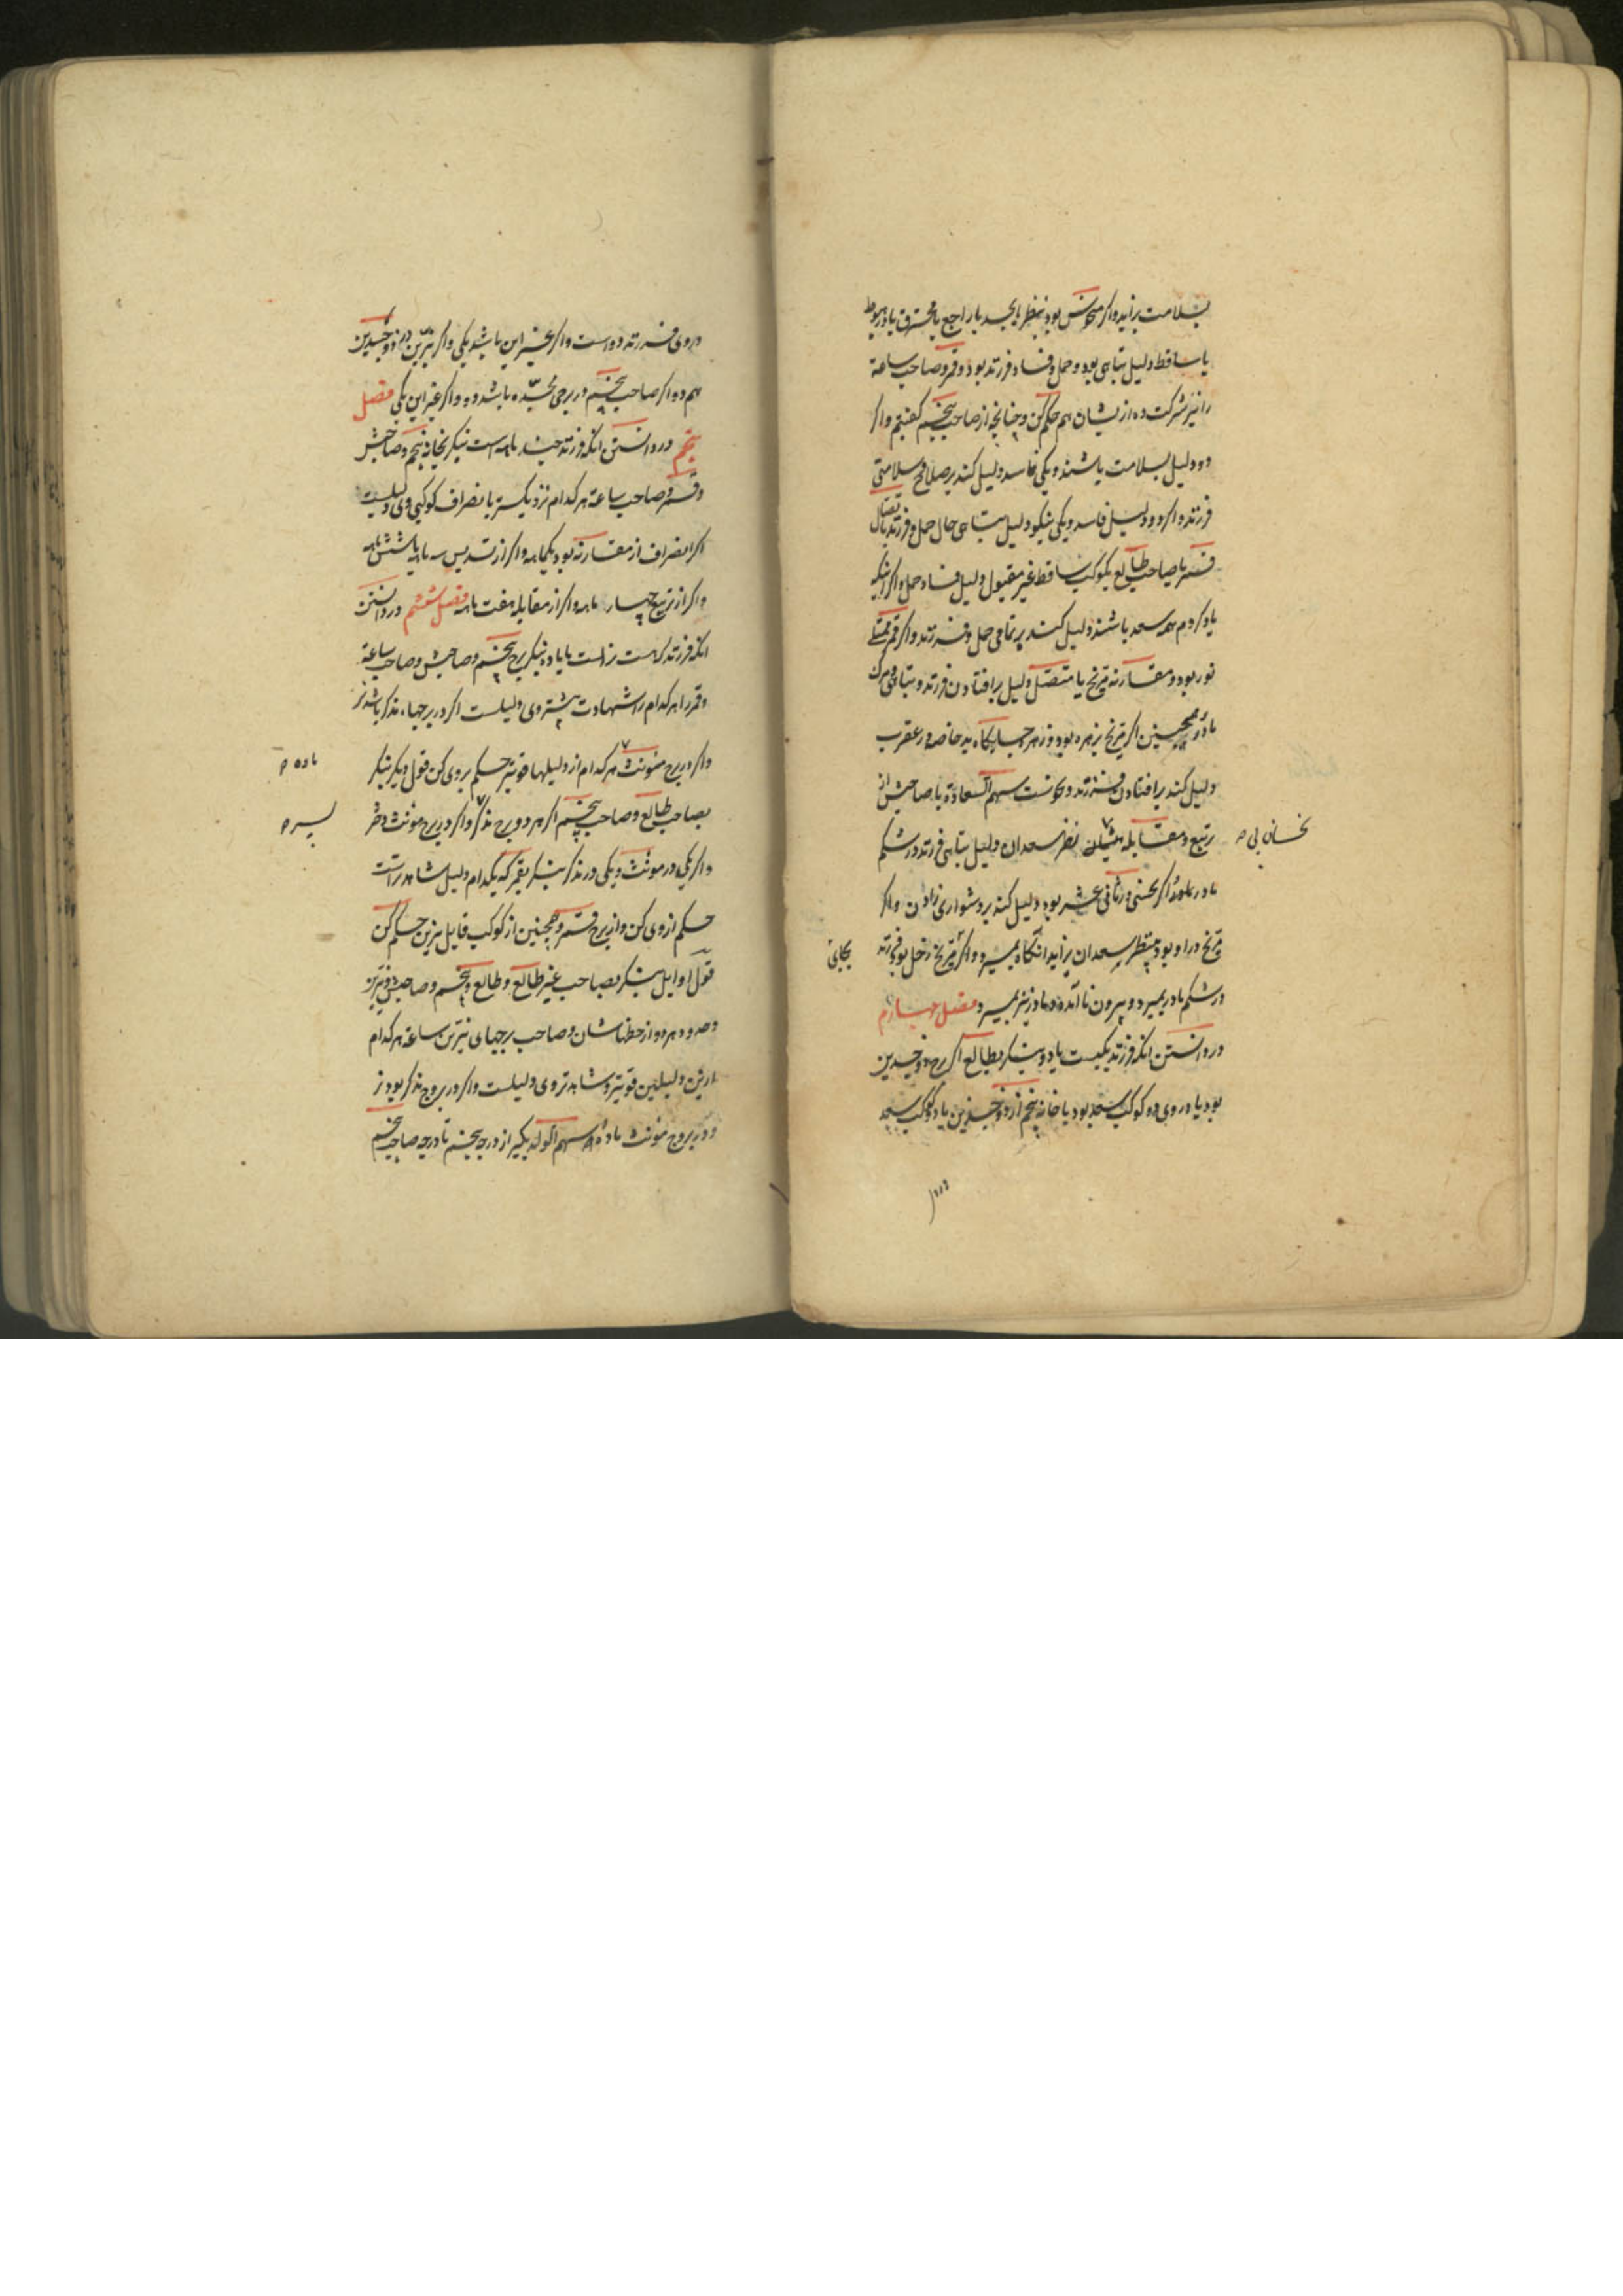 بسلامت برآید واکر منحوس بود بنظر یا بجسد یا راجع یا محترق یا در هبوط
یا ساقط دلیل تباهی بود و حمل و فساد فرزند بود و قمر و صاحب ساعة
را نیز شرکت ده از یشان هم حکم کن و چنانچه از صاحب پنجم کفتیم واکر
دو دلیل بسلامت باشند و یکی فاسد دلیل کند بر صلاح و سلامتی
فرزند واکر دو دلیل فاسد و یکی نیکو دلیل تباهی حال حمل و فرزند اتصال
قمر یا صاحب طالع بکوکب ساقط غیر مقبول دلیل فساد حمل واکر اینکه
یاد کردم همه سعد باشند دلیل کند بر تمامی حمل و فرزند واکر قمر ممتلی
نور بود و مقارنه مریخ یا متصل دلیل بر افتادن فرزند و تباهی و مرک
مادر همچنین اکر مریخ بزهره بود و زهره بجایکاه بد خاصه در عقرب
دلیل کند بر افتادن فرزند و نحوست سهم السعادة یا صاحبش از
تربیع و مقابله نظر سعدان دلیل تباهی فرزند در شکم
نحسان بی
مادر اکر نحسی در ثانی عشر بود دلیل کند بر دشواری زادن واکر
مریخ در او بود بنظر سعدان بزاید انکاه بمیرد واکر مریخ زحل بود فرزند
بجای
در شکم مادر بمیرد و بیرون نا آمده و مادر نیز بمیرد فصل چهارم
در دانستن انکه فرزند یکیست یا دو بنکر بطالع اکر برج ذو جسدین
بود یا در وی دو کوکب سعد بود یا خانه پنجم از ذو جسدین یا دو کوکب سعد
در وی فرزند دو است واکر بخیر این باشد یکی واکر نیرین در ذو جسدین
هم دو اکر صاحب پنجم در برجی مجسده باشد دو واکر غیر این یکی فصل
پنجم در دانستن انکه فرزند چند ماهه است بنکر بخانه پنجم و صاحبش
و قمر و صاحب ساعة هر کدام نزدیکتر با نصراف کوکبی وی دلیلست
اکر انصراف از مقارنه بود یکماهه واکر از تسدیس سه ماهه یا شش ماهه
واکر از تربیع چهار ماهه واکر از مقابله هفت ماهه فصل ششم در دانستن
انکه فرزند که هست نر است یا ماده بنکر برج پنجم و صاحبش و صاحب ساعة
و قمر را هر کدام را شهادت بیشتر وی دلیلست اکر در برجهاء مذکر باشد نر
واکر در برج مونث هر کدام از دلیلها قویتر حکم بر وی کن قول دیکر بنکر
ماده
بصاحب طالع و صاحب پنجم اکر هر دو برج مذکر واکر در برج مونث دختر
پسر
واکر یکی در مونث و یکی در مذکر بنکر بقمر که بکدام دلیل شاهدتر است
حکم از وی کن و از برج قمر و همچنین از کوکب قابل بزین حکم کن
قول اوایل بنکر بصاحب غیر طالع و طالع و پنجم و صاحبش و نیرین
وحدود هر دو از حظهاشان و صاحب برجهای نیرین ساعة هر کدام
ازین دلیلین قویتر و شاهدتر وی دلیلست واکر در بروج مذکر بود نر
و در بروج مونث ماده سهم الولد بکیر از درجه پنجم تا درجه صاحب پنجم